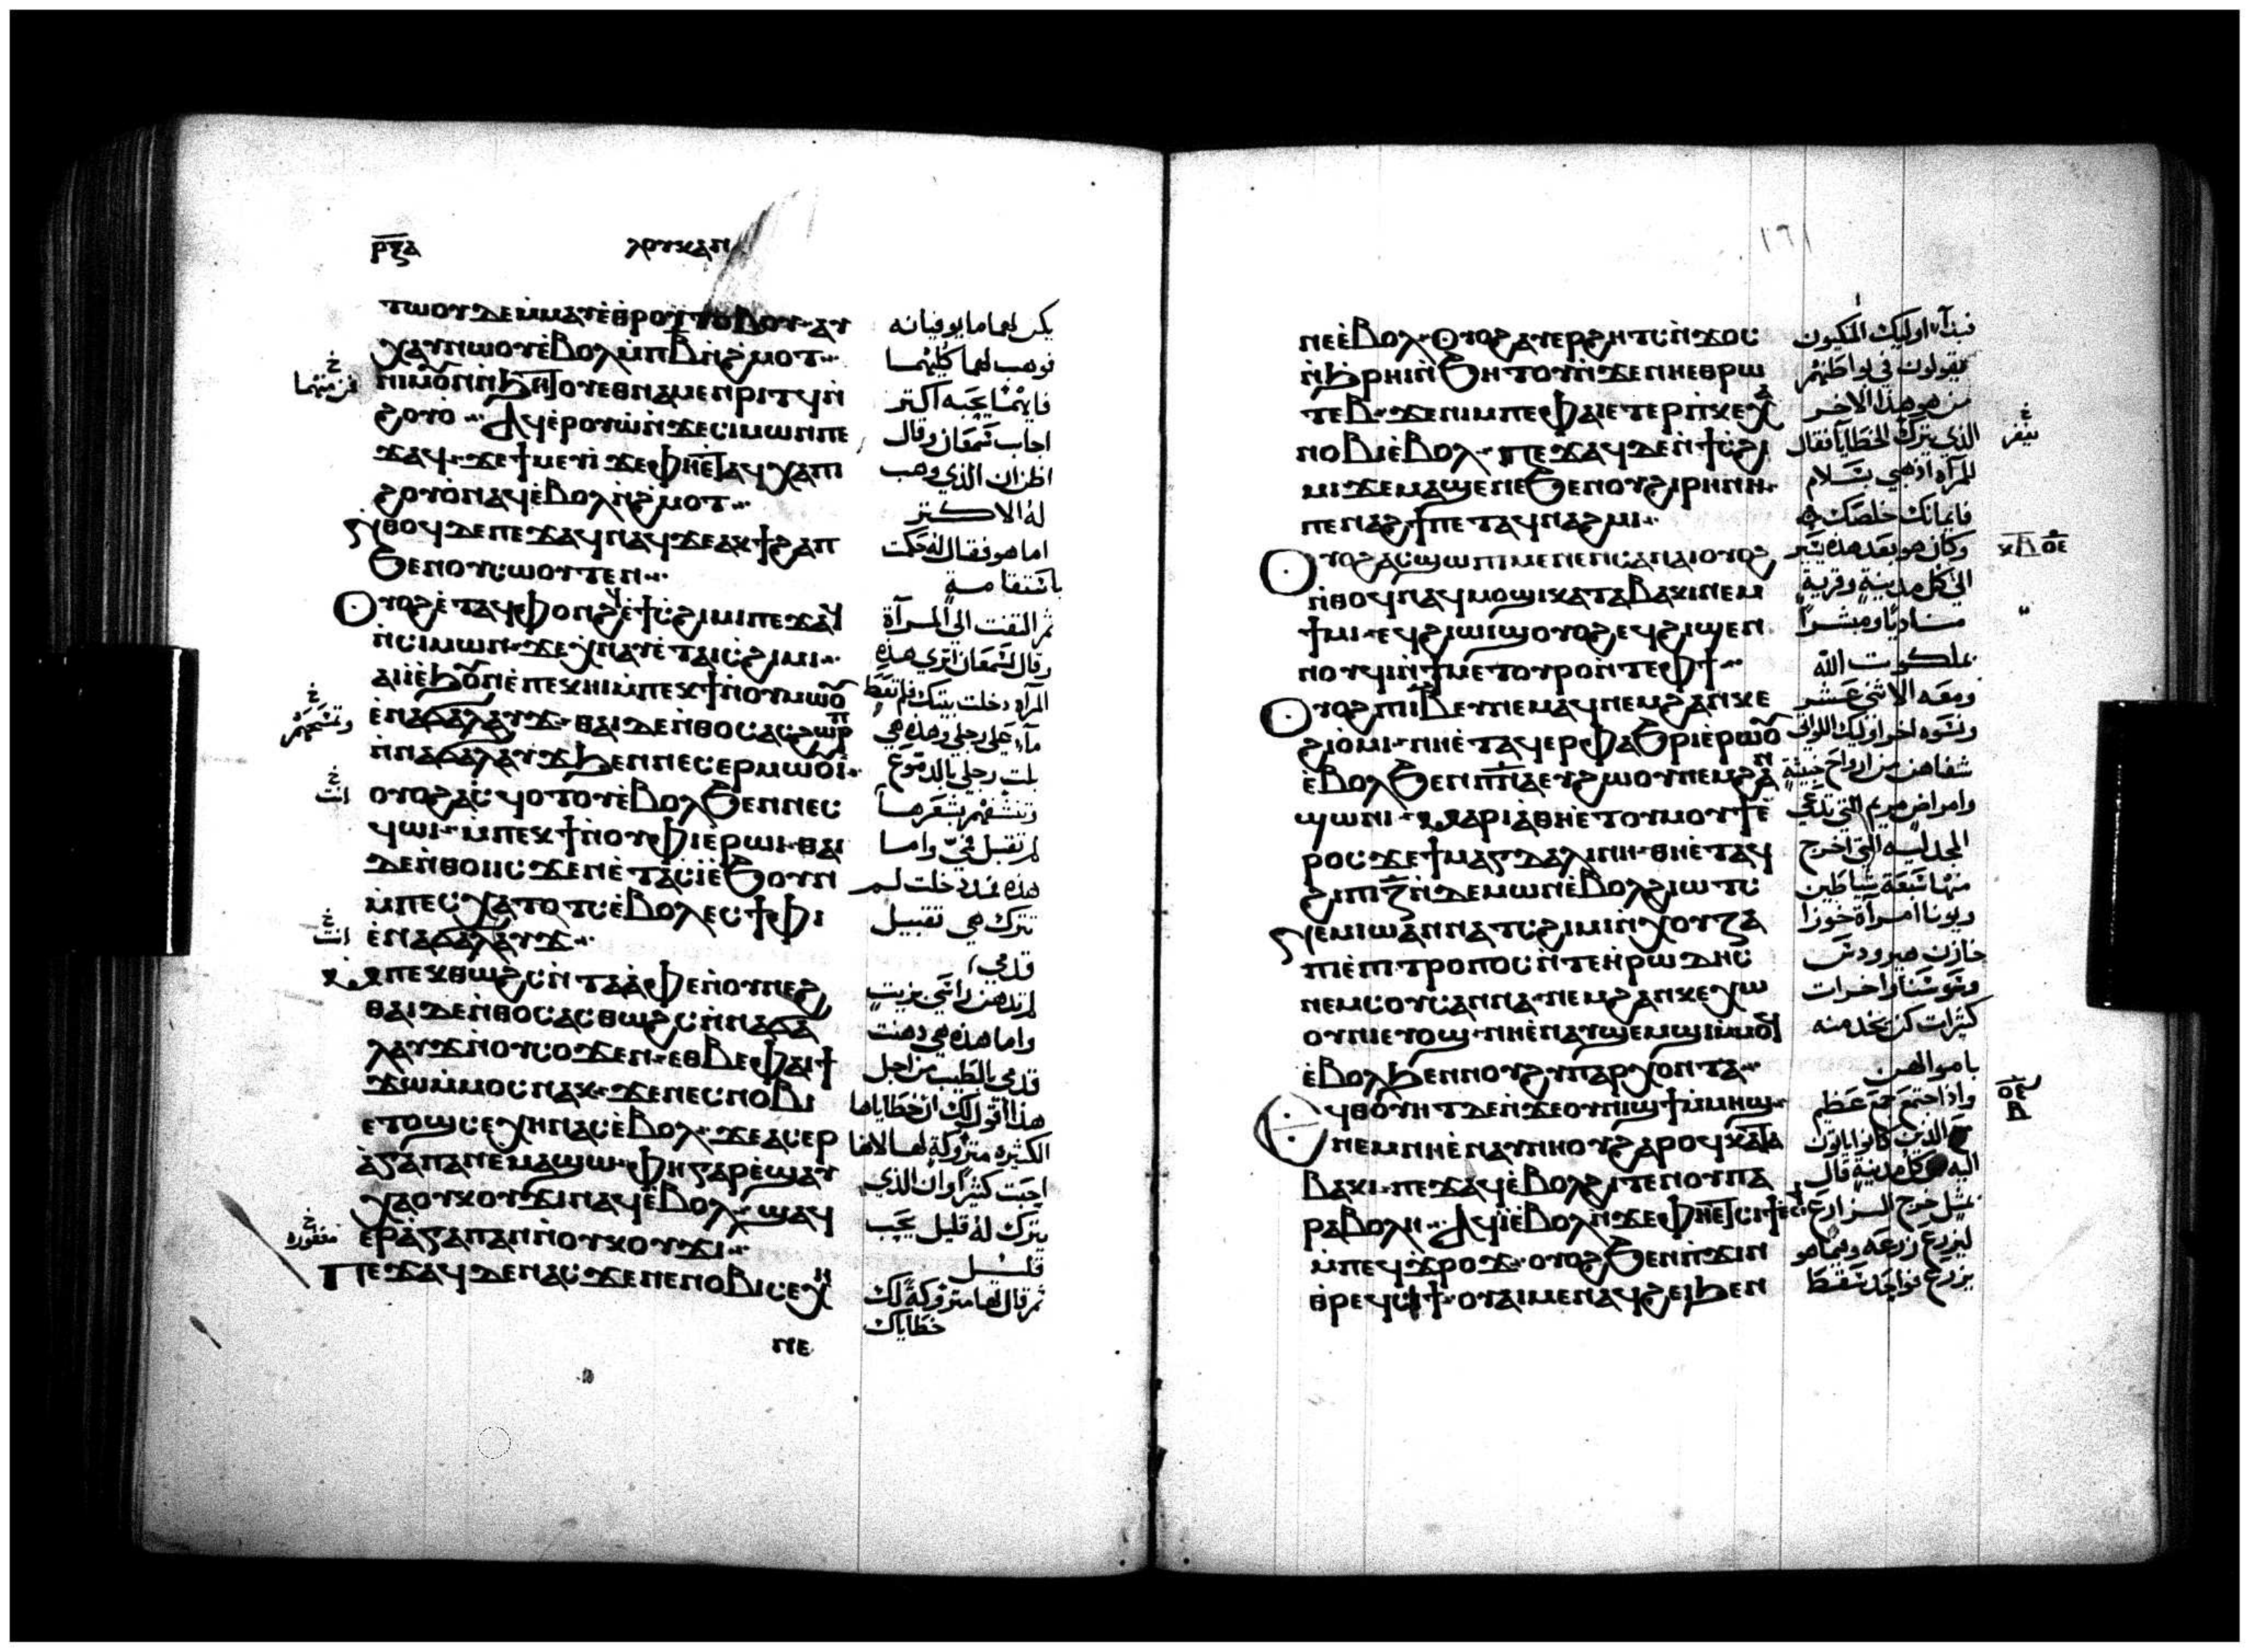 ⲣⲝⲁ
ⲗⲟⲩⲕⲁⲛ
ⲧⲱⲟⲩ ⲇⲉ ⲙ̀ⲙⲁⲩ ⲉ̀ⲑⲣⲟⲩⲧⲟⲃⲟⲩ· ⲁϥ
ⲭⲁⲩ ⲛⲱⲟⲩ ⲉ̀ⲃⲟⲗ
ⲛⲓⲙ
ϩⲟⲩⲟ̀· Ⲁϥⲉⲣⲟⲩⲱ̀ ⲛ̀ϫⲉ ⲥⲓⲙⲱⲛ ⲡⲉ
ϫⲁϥ· ϫⲉ ϯⲙⲉⲩⲓ̀ ϫⲉ ⲫⲏⲉⲧⲁϥⲭⲁ ⲡⲓ
ϩⲟⲩⲟ̀ ⲛⲁϥ ⲉ̀ⲃⲟⲗ ⲛ̀ϩⲙⲟⲧ
ⲛ̀ⲑⲟϥ ⲇⲉ ⲡⲉϫⲁϥ ⲛⲁϥ ϫⲉ ⲁⲕϯϩⲁⲡ
ϧⲉⲛ ⲟⲩⲥⲱⲟⲩⲧⲉⲛ
Ⲟⲩⲟϩ ⲉ̀ⲧⲁϥⲫⲟⲛϩϥ ⲉ̀ϯⲥϩⲓⲙⲓ ⲡⲉϫⲁϥ
ⲛ̀ⲥⲓⲙⲱⲛ· ϫⲉ ⲭⲛⲁⲩ ⲉ̀ⲧⲁⲓⲥϩⲓⲙⲓ
ⲁⲓⲓ̀ ⲉ̀ϧⲟⲩⲛ ⲉ̀ⲡⲉⲕⲏⲓ ⲙ̀ⲡⲉⲕϯ ⲛⲟⲩⲙⲱⲟⲩ
ⲉ̀ⲛⲁϭⲁⲗⲁⲩϫ· ⲑⲁⲓ ⲇⲉ ⲛ̀ⲑⲟⲥ ⲁⲥϩⲱⲣⲡ
ⲛ̀ⲛⲁϭⲁⲗⲁⲩϫ ϧⲉⲛ ⲛⲉⲥⲉⲣⲙⲱⲟⲩⲓ̀
ⲟⲩⲟϩ ⲁⲥϥⲟⲧⲟⲩ ⲉ̀ⲃⲟⲗ ϧⲉⲛ ⲡⲉⲥ
ϥⲱⲓ· ⲙ̀ⲡⲉⲕϯ ⲛⲟⲩⲫⲓ ⲉ̀ⲣⲱⲓ· ⲑⲁⲓ
ⲇⲉ ⲛ̀ⲑⲟⲥ ⲓⲥϫⲉⲛ ⲉ̀ⲧⲁⲥⲓ̀ ⲉ̀ϧⲟⲩⲛ
ⲙ̀ⲡⲉⲥⲭⲁⲧⲟⲧⲥ ⲉ̀ⲃⲟⲗ ⲉⲥϯⲫⲓ
ⲉ̀ⲛⲁϭⲁⲗⲁⲩϫ
ⲙ̀ⲡⲉⲕⲑⲱϩⲥ ⲛ̀ⲧⲁⲁ̀ⲫⲉ ⲛ̀ⲟⲩⲛⲉϩ
ⲑⲁⲓ ⲇⲉ ⲛ̀ⲑⲟⲥ ⲁⲥⲑⲱϩⲥ ⲛ̀ⲛⲁϭⲁ
ⲗⲁⲩϫ ⲛ̀ⲟⲩⲥⲟϫⲉⲛ· ⲉⲑⲃⲉ ⲫⲁⲓ ϯ
ϫⲱ ⲙ̀ⲙⲟⲥ ⲛⲁⲕ· ϫⲉ ⲛⲉⲥⲛⲟⲃⲓ
ⲉⲧⲟϣ ⲥⲉⲭⲏ ⲛⲁⲥ ⲉ̀ⲃⲟⲗ· ϫⲉ ⲁⲥⲉⲣ
ⲁ̀ⲅⲁⲡⲁⲛ ⲉ̀ⲙⲁϣⲱ· ⲫⲏ ⲅⲁⲣ ⲉ̀ϣⲁⲩ
ⲭⲁ ⲟⲩⲕⲟⲩϫⲓ ⲛⲁϥ ⲉ̀ⲃⲟⲗ· ϣⲁϥ
ⲉⲣⲁ̀ⲅⲁⲡⲁⲛ ⲛ̀ⲟⲩⲕⲟⲩϫⲓ
Ⲡⲉϫⲁϥ ⲇⲉ ⲛⲁⲥ ϫⲉ ⲛⲉⲛⲟⲃⲓ ⲥⲉⲭⲏ
ⲛⲉ
يكن لهما ما يوفيانه
فوهب لهما كليهما
فايهما يحبه اكتر
اجاب سمعان وقال
اظن ان الذي وهب
له الاكتر
اما هو فقال له حكمت
باستقامة
ثم التفت الي المرآة
وقال لسمعان اتري هذه
المرآه دخلت بيتك فلم تعط
مآء علي رجلي وهذه هي
بلت رجلي بالدموع
وتنشفهم بشعرها
لم تقبل في واما
هذه منذ دخلت لم
تترك هي تقبيل
قدمي
لم تدهن راسي بزيت
واما هذه هي دهنت
قدمي بالطيب من اجل
هذا اقول لك ان خطاياها
الكثيره متروكة لها لانها
احبت كثيرا وان الذي
يترك له قليل يحب
قليل
ثم قال لها متروكة لك
خطاياك
١٦١
ⲛⲉ ⲉ̀ⲃⲟⲗ· Ⲟⲩⲟϩ ⲁⲩⲉⲣϩⲏⲧⲥ ⲛ̀ϫⲟⲥ
ⲛ̀ϧⲣⲏⲓ ⲛ̀ϧⲏⲧⲟⲩ ⲛ̀ϫⲉ ⲛⲏⲉⲑⲣⲱ
ⲧⲉⲃ· ϫⲉ ⲛⲓⲙ ⲡⲉ ⲫⲁⲓ ⲉⲧⲉⲣ ⲛ̀ⲕⲉⲭⲁ
ⲛⲟⲃⲓ ⲉ̀ⲃⲟⲗ· ⲡⲉϫⲁϥ ⲇⲉ ⲛ̀ϯⲥϩⲓ
ⲙⲓ ϫⲉ ⲙⲁϣⲉ ⲛⲉ ϧⲉⲛ ⲟⲩϩⲓⲣⲏⲛⲏ·
ⲡⲉⲛⲁϩϯ ⲡⲉⲧⲁϥⲛⲁϩⲙⲓ
Ⲟⲩⲟϩ ⲁⲥϣⲱⲡⲓ ⲙⲉⲛⲉⲛⲥⲁ ⲛⲁⲓ ⲟⲩⲟϩ
ⲛ̀ⲑⲟϥ ⲛⲁϥⲙⲟϣⲓ ⲕⲁⲧⲁ ⲃⲁⲕⲓ ⲛⲉⲙ
ϯⲙⲓ· ⲉϥϩⲓⲱⲓϣ ⲟⲩⲟϩ ⲉϥϩⲓϣⲉⲛ
ⲛⲟⲩϥⲓ ⲛ̀ϯⲙⲉⲧⲟⲩⲣⲟ ⲛ̀ⲧⲉ ⲫϯ
Ⲟⲩⲟϩ ⲡⲓⲓⲃ ⲉⲩⲛⲉⲙⲁϥ ⲛⲉⲙ ϩⲁⲛⲕⲉ
ϩⲓⲟ̀ⲙⲓ· ⲛⲏⲉ̀ⲧⲁϥⲉⲣⲫⲁϧⲣⲓ ⲉ̀ⲣⲱⲟⲩ
ⲉ̀ⲃⲟⲗ ϧⲉⲛ ⲡⲛⲁ ⲉⲩϩⲱⲟⲩ ⲛⲉⲙ ϩⲁⲛ
ϣⲱⲛⲓ· ⲙⲁⲣⲓⲁ ⲑⲏⲉ̀ⲧⲟⲩⲙⲟⲩϯ ⲉ̀
ⲣⲟⲥ ϫⲉ ϯⲙⲁⲅⲇⲁⲗⲓⲛⲏ· ⲑⲏⲉ̀ⲧⲁϥ
ϩⲓ ⲡⲓⲍ̅ ⲛ̀ⲇⲉⲙⲱⲛ ⲉ̀ⲃⲟⲗ ϩⲓⲱⲧⲥ
ⲛⲉⲙ ⲓⲱⲁⲛⲛⲁ ⲧⲥϩⲓⲙⲓ ⲛ̀ⲭⲟⲩⲍⲁ
ⲡⲓⲉ̀ⲡⲓⲧⲣⲟⲡⲟⲥ ⲛ̀ⲧⲉ ⲏ̀ⲣⲱⲇⲏⲥ
ⲛⲉⲙ ⲥⲟⲩⲥⲁⲛⲛⲁ· ⲛⲉⲙ ϩⲁⲛⲕⲉⲭⲱ
ⲟⲩⲛⲓ ⲉⲩⲟϣ· ⲛⲏⲉ̀ⲛⲁⲩϣⲉⲙϣⲓ ⲙ̀ⲙⲟϥ
ⲉ̀ⲃⲟⲗ ϧⲉⲛ ⲛⲟⲩϩⲩⲡⲁⲣⲭⲟⲛⲧⲁ
Ⲉⲧⲁϥⲑⲱⲟⲩϯ ⲇⲉ ⲛ̀ϫⲉ ⲟⲩⲛⲓϣϯ ⲙ̀ⲙⲏϣ
ⲛⲉⲙ ⲛⲏⲉ̀ⲛⲁⲩⲛⲏⲟⲩ ϩⲁⲣⲟϥ ⲕⲁⲧⲁ
ⲃⲁⲕⲓ· ⲡⲉϫⲁϥ ⲉ̀ⲃⲟⲗ ϩⲓⲧⲉⲛ ⲟⲩⲡⲁ
ⲣⲁⲃⲟⲗⲏ· Ⲁϥⲓ̀ ⲉ̀ⲃⲟⲗ ⲛ̀ϫⲉ ⲫⲏⲉⲧⲥⲓϯ ⲉ̀ⲥⲓϯ
ⲙ̀ⲡⲉϥϫⲣⲟϫ· ⲟⲩⲟϩ ϧⲉⲛ ⲡ̀ϫⲓⲛ
ⲑⲣⲉϥⲥⲓϯ· ⲟⲩⲁⲓ ⲙⲉⲛ ⲁϥϩⲉⲓ ϧⲉⲛ
فبدآ اوليك المتكيون
يقولون في بواطنهم
من هو هذا الاخر
الذي يترك الخطايا فقال
للمرآه اذهبي بسلام
فايمانك خلصك
وكان هو بعد هذه يسير
الي كل مدينة وقرية
مناديا ومبشرا
بملكوت الله
ومعه الاثني عشر
ونسوه اخر اوليك اللواتي
شفاهن من ارواح خبيثة
وامراض مريم التي تدعي
المجدليه التي اخرج
منها سبعة شياطين
ويونا امرآة خوزا
خازن هيرودس
وسوسنا واخرات
كثيرات كن يخدمنه
باموالهن
واذا اجتمع جمع عظيم
الذين كانوا ياتون
اليه كل مدينة قال
بمثل خرج الزارع
ليزرع زرعه وفيما هو
يزرع فواحد سقط